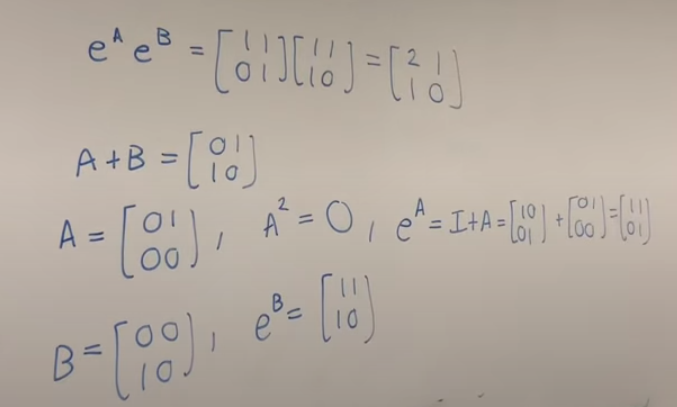 e^A e^B = [1 1; 0 1][1 1; 1 0] = [2 1; 1 0]
A + B = [0 1; 1 0]
A = [0 1; 0 0], A^2 = 0, e^A = I + A = [1 0; 0 1] + [0 1; 0 0] = [1 1; 0 1]
B = [0 0; 1 0], e^B = [1 1; 1 0]